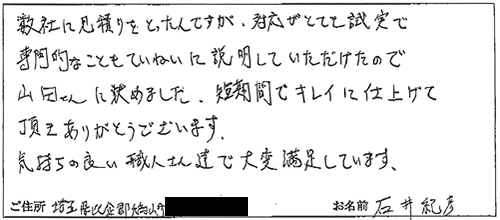 数社に見積りをとったんですが、対応がとても誠実で
専門的なこともていねいに説明していただけたので
山田さんに決めました、短期間でキレイに仕上げて
頂きありがとうございます、
気持ちの良い職人さん達で大変満足しています、
ご住所 埼玉県比企郡鳩山町 お名前 石井紀彦